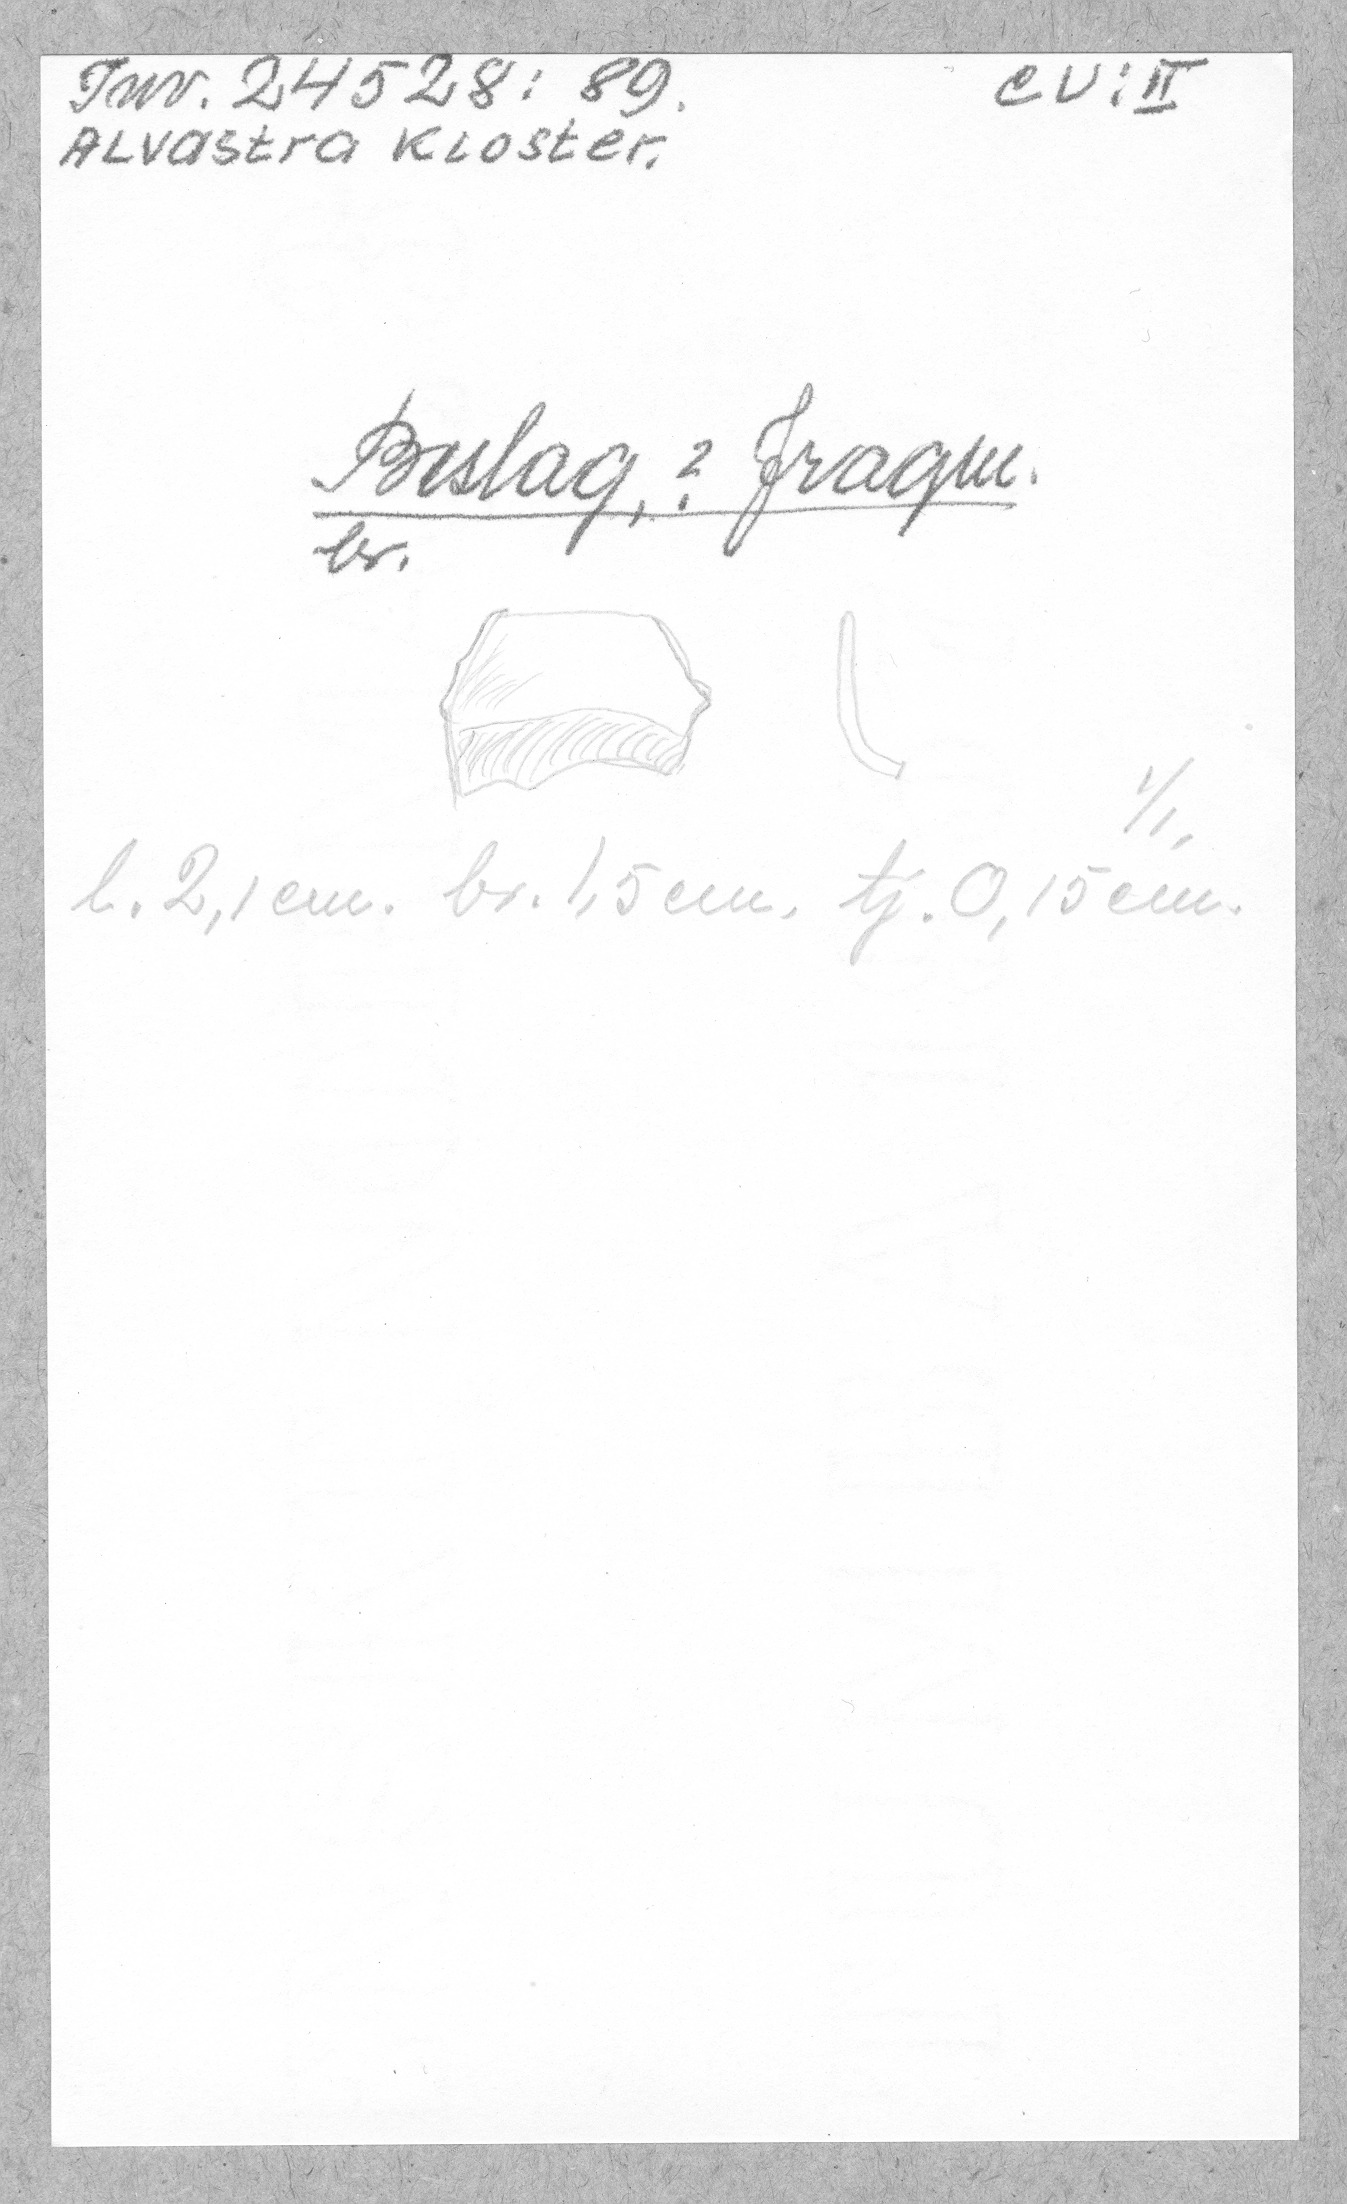 Inv. 24528: 89. CV: II
ALVastra KLoster.
Beslag,? fragm.
br.
1/1.
l. 2,1 cm. br. 1,5 cm. tj. 0,15 cm.